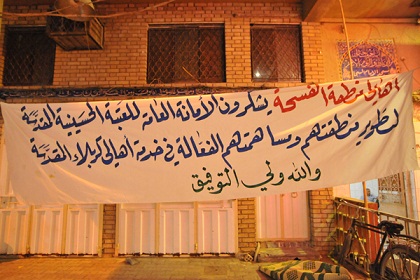 أهالي منطقة الفسحة يشكرون الأمانة العامة للعتبة الحسينية المقدسة
لتطوير منطقتهم ومساهمتهم الفعالة في خدمة اهالي كربلاء المقدسة
والله ولي التوفيق